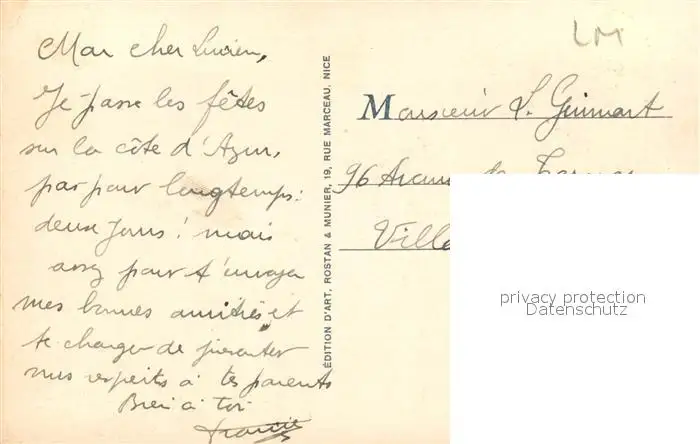 LM
Mon cher Lucien,
Je passe les fêtes
sur la côte d'Azur,
pas pour longtemps:
deux jours! mais
assez pour t'envoyer
mes bonnes amitiés et
te charger de présenter
mes respects à tes parents
Bien à toi
ÉDITION D'ART, ROSTAN & MUNIER, 19, RUE MARCEAU, NICE
Monsieur L. Guimart
96 Avenue
privacy protection
Datenschutz